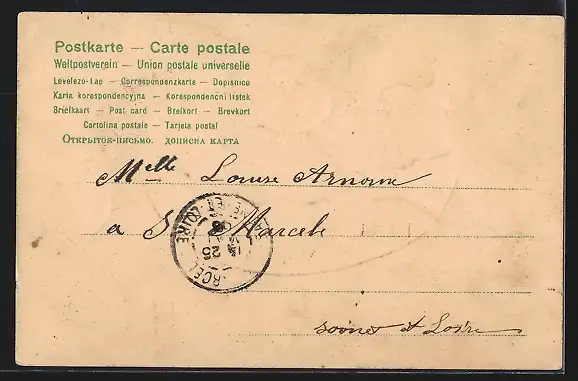 Postkarte — Carte postale
Weltpostverein — Union postale universelle
Levelezo-Lap — Correspondenzkarte — Dopisnico
Karta korespondencyjna — Korespondenční lístek
Briefkaart — Post card — Brefkort — Brevkort
Cartolina postale — Tarjeta postal
Открытое-письмо. дописна карта
Melle Louise
a St Marcel
ET-LOIRE
25
saone et Loire